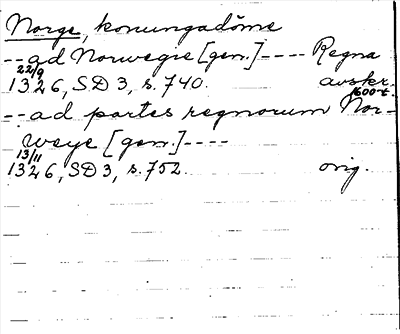 Norge, konungadöme
-- ad Norwegie [gen.] ---- Regna
22/9
1326, SD 3, s. 740. avskr. 1600-t.
-- ad partes regnorum Nor-
weye [gen.] ----
13/11
1326, SD 3, s. 752. orig.